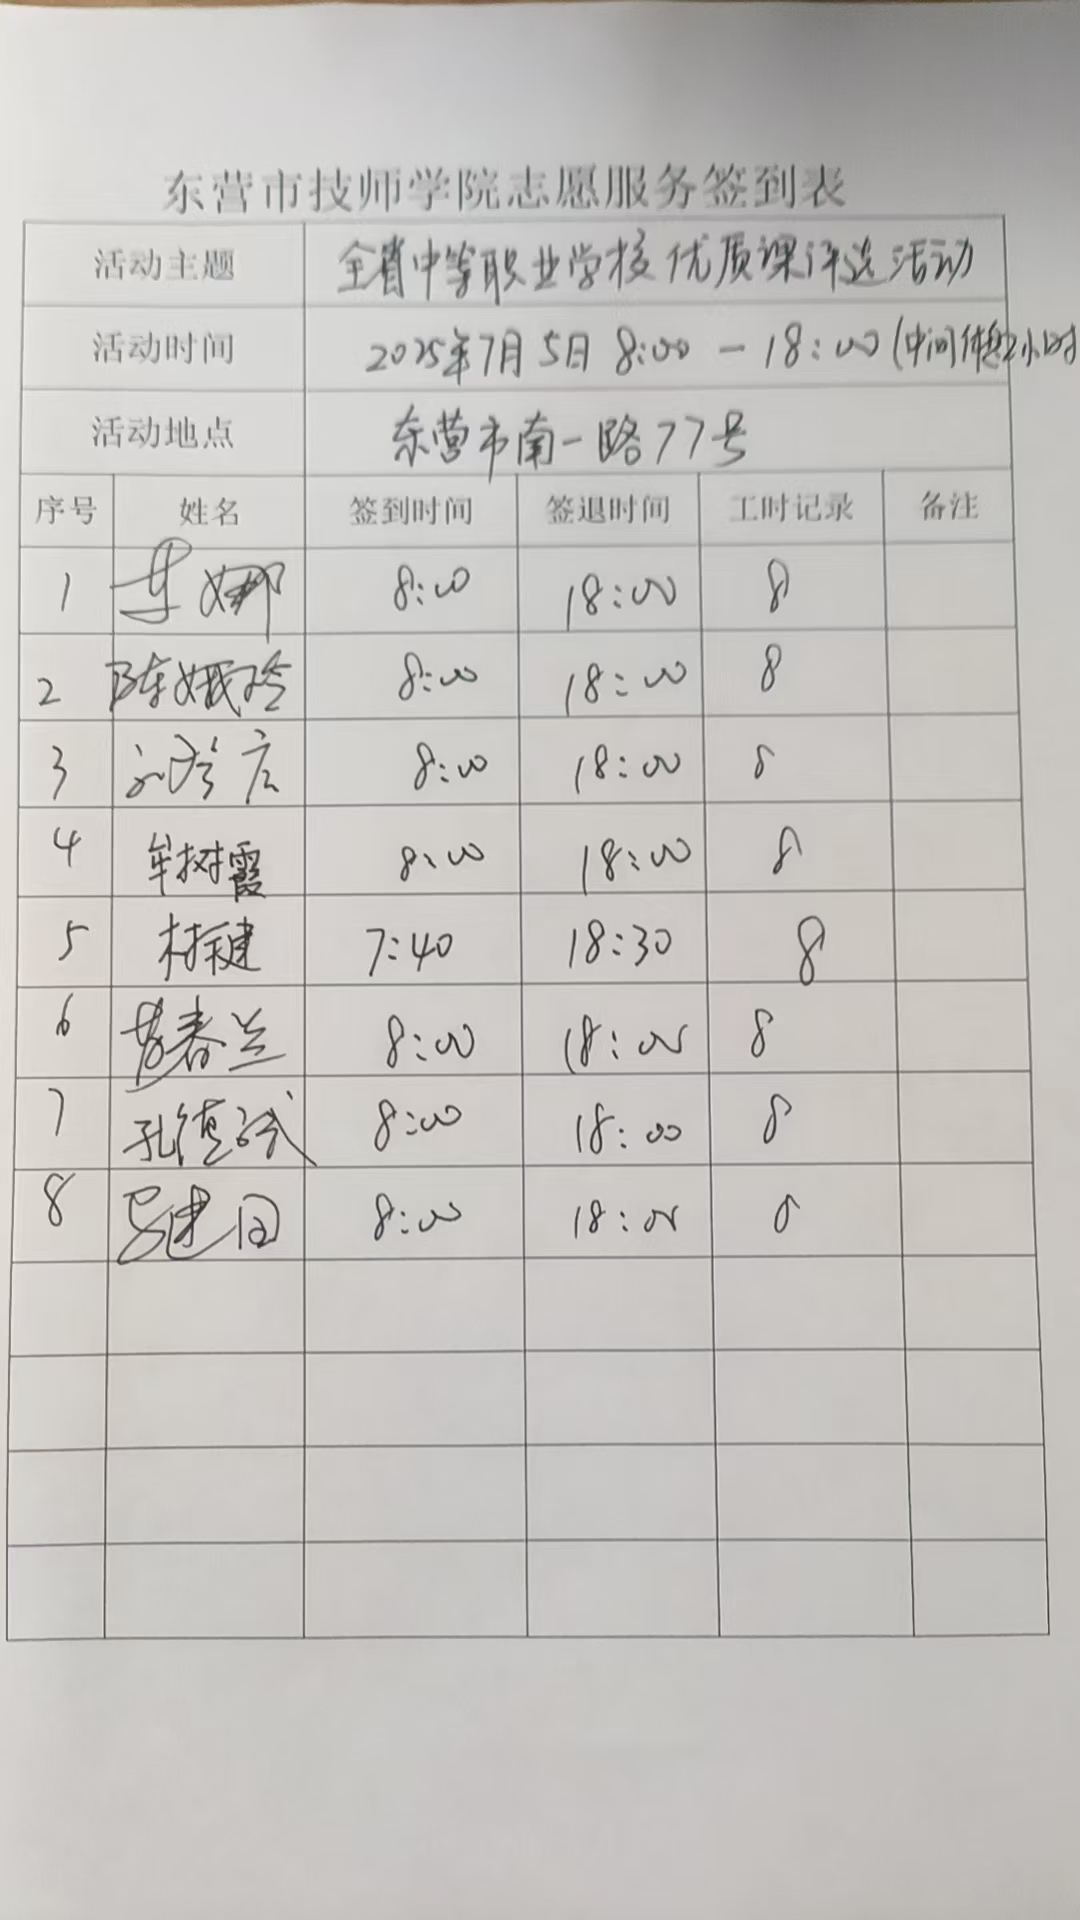 东营市技师学院志愿服务签到表
活动主题 全省中等职业学校优质课评选活动
活动时间 2025年7月5日 8:00-18:00(中间休息2小时
活动地点 东营市南一路77号
序号 姓名 签到时间 签退时间 工时记录 备注
1 李娜 8:00 18:00 8
2 陈娥玲 8:00 18:00 8
3 8:00 18:00 8
4 牟树霞 8:00 18:00 8
5 林建 7:40 18:30 8
6 春兰 8:00 18:00 8
7 孔德武 8:00 18:00 8
8 建国 8:00 18:00 8